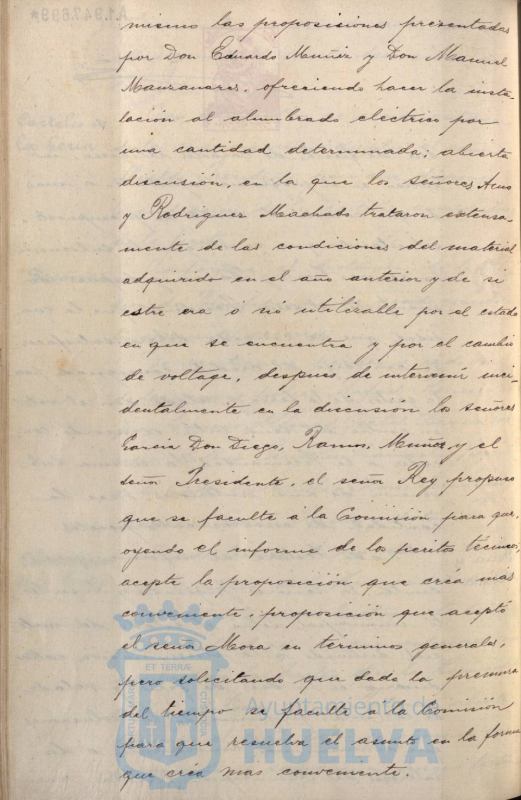 mismo las proposiciones presentadas
por Don Eduardo Muñiz y Don Manuel
Manzanares, ofreciendo hacer la insta-
lación al alumbrado eléctrico por
una cantidad determinada; abierta
discusión, en la que los señores
y Rodriguez Machado trataron extensa-
mente de las condiciones del material
adquirido en el año anterior y de si
estre era ó nó utilizable por el estado
en que se encuentra y por el cambio
de voltage, después de intervenir inci-
dentalmente en la discusión los señores
Garcia Don Diego, Ramos, Muñiz y el
señor Presidente, el señor Rey propuso
que se faculte á la Comisión para que,
oyendo el informe de los peritos técnicos,
acepte la proposición que créa más
conveniente, proposición que aceptó
el señor Mora en términos generales,
pero solicitando que dada la premura
del tiempo se faculte á la Comisión
para que resuelva el asunto en la forma
que créa mas conveniente.
Ayuntamiento de
HUELVA